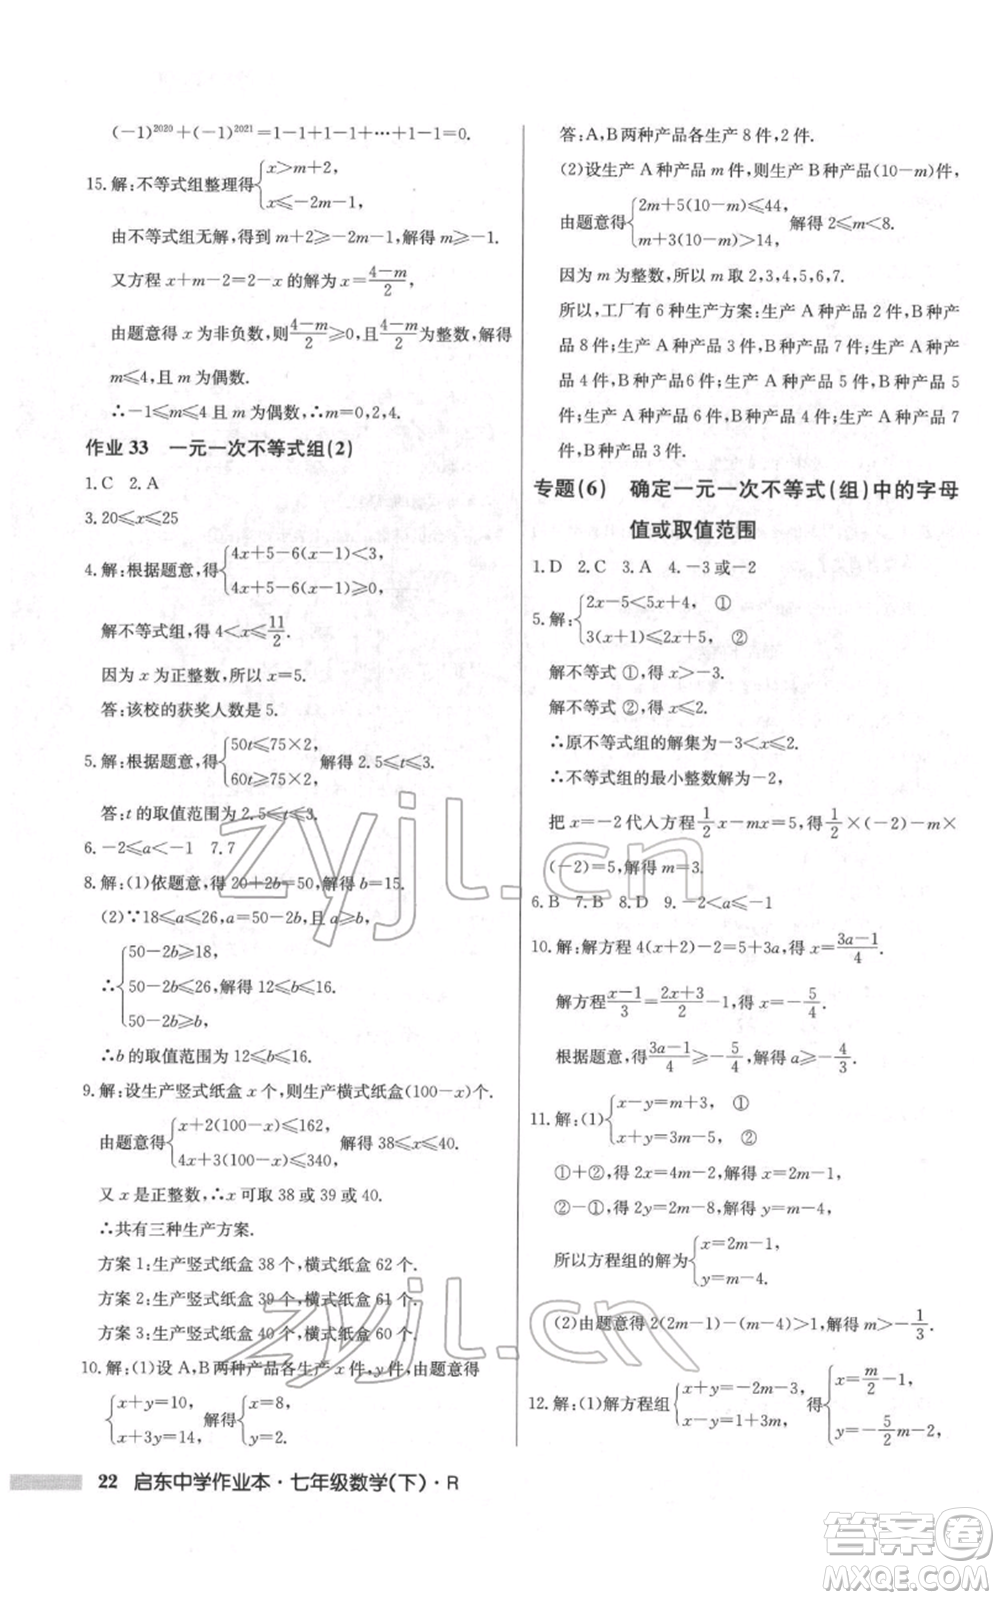 (-1)²⁰²⁰+(-1)²⁰²¹=1-1+1-1+…+1-1=0.
15. 解:不等式组整理得{x>m+2, x≤-2m-1,
由不等式组无解,得到 m+2≥-2m-1,解得 m≥-1.
又方程 x+m-2=2-x 的解为 x=(4-m)/2.
由题意得 x 为非负数,则(4-m)/2≥0,且(4-m)/2为整数,解得
m≤4,且 m 为偶数.
∴-1≤m≤4 且 m 为偶数,∴m=0,2,4.
作业 33 一元一次不等式组(2)
1.C 2.A
3.20≤x≤25
4.解:根据题意,得{4x+5-6(x-1)<3, 4x+5-6(x-1)≥0,
解不等式组,得 4<x≤11/2.
因为 x 为正整数,所以 x=5.
答:该校的获奖人数是 5.
5.解:根据题意,得{50t≤75×2, 60t≥75×2, 解得 2.5≤t≤3.
答:t 的取值范围为 2.5≤t≤3.
6.-2≤a<-1 7.7
8.解:(1)依题意,得 20+2b=50,解得 b=15.
(2)∵18≤a≤26,a=50-2b,且 a≥b,
∴{50-2b≥18, 50-2b≤26, 50-2b≥b, 解得 12≤b≤16.
∴b 的取值范围为 12≤b≤16.
9.解:设生产竖式纸盒 x 个,则生产横式纸盒(100-x)个.
由题意得{x+2(100-x)≤162, 4x+3(100-x)≤340, 解得 38≤x≤40.
又 x 是正整数,∴x 可取 38 或 39 或 40.
∴共有三种生产方案.
方案 1:生产竖式纸盒 38 个,横式纸盒 62 个.
方案 2:生产竖式纸盒 39 个,横式纸盒 61 个.
方案 3:生产竖式纸盒 40 个,横式纸盒 60 个.
10.解:(1)设 A,B 两种产品各生产 x 件,y 件,由题意得
{x+y=10, x+3y=14, 解得{x=8, y=2.
答:A,B 两种产品各生产 8 件,2 件.
(2)设生产 A 种产品 m 件,则生产 B 种产品(10-m)件,
由题意得{2m+5(10-m)≤44, m+3(10-m)>14, 解得 2≤m<8.
因为 m 为整数,所以 m 取 2,3,4,5,6,7.
所以,工厂有 6 种生产方案:生产 A 种产品 2 件,B 种
产品 8 件;生产 A 种产品 3 件,B 种产品 7 件;生产 A
种产品 4 件,B 种产品 6 件;生产 A 种产品 5 件,B 种产品 5
件;生产 A 种产品 6 件,B 种产品 4 件;生产 A 种产品 7
件,B 种产品 3 件.
专题(6) 确定一元一次不等式(组)中的字母
值或取值范围
1.D 2.C 3.A 4.-3 或-2
5.解:{2x-5<5x+4, ① 3(x+1)≤2x+5, ②
解不等式 ①,得 x>-3.
解不等式 ②,得 x≤2.
∴原不等式组的解集为-3<x≤2.
∴不等式组的最小整数解为-2.
把 x=-2 代入方程1/2x-mx=5,得1/2×(-2)-m×
(-2)=5,解得 m=3.
6.B 7.B 8.D 9.-2<a≤-1
10.解:解方程 4(x+2)-2=5+3a,得 x=(3a-1)/4.
解方程(x-1)/3=(2x+3)/2-1,得 x=-5/4.
根据题意,得(3a-1)/4≥-5/4,解得 a≥-4/3.
11.解:(1){x-y=m+3, ① x+y=3m-5, ②
①+②,得 2x=4m-2,解得 x=2m-1,
②-①,得 2y=2m-8,解得 y=m-4,
所以方程组的解为{x=2m-1, y=m-4.
(2)由题意得 2(2m-1)-(m-4)>1,解得 m>-1/3.
12.解:(1)解方程组{x+y=-2m-3, x-y=1+3m, 得{x=m/2-1, y=-5/2m-2.
22 启东中学作业本·七年级数学(下)·R
zyjl.cn
zyjl.cn
答案卷